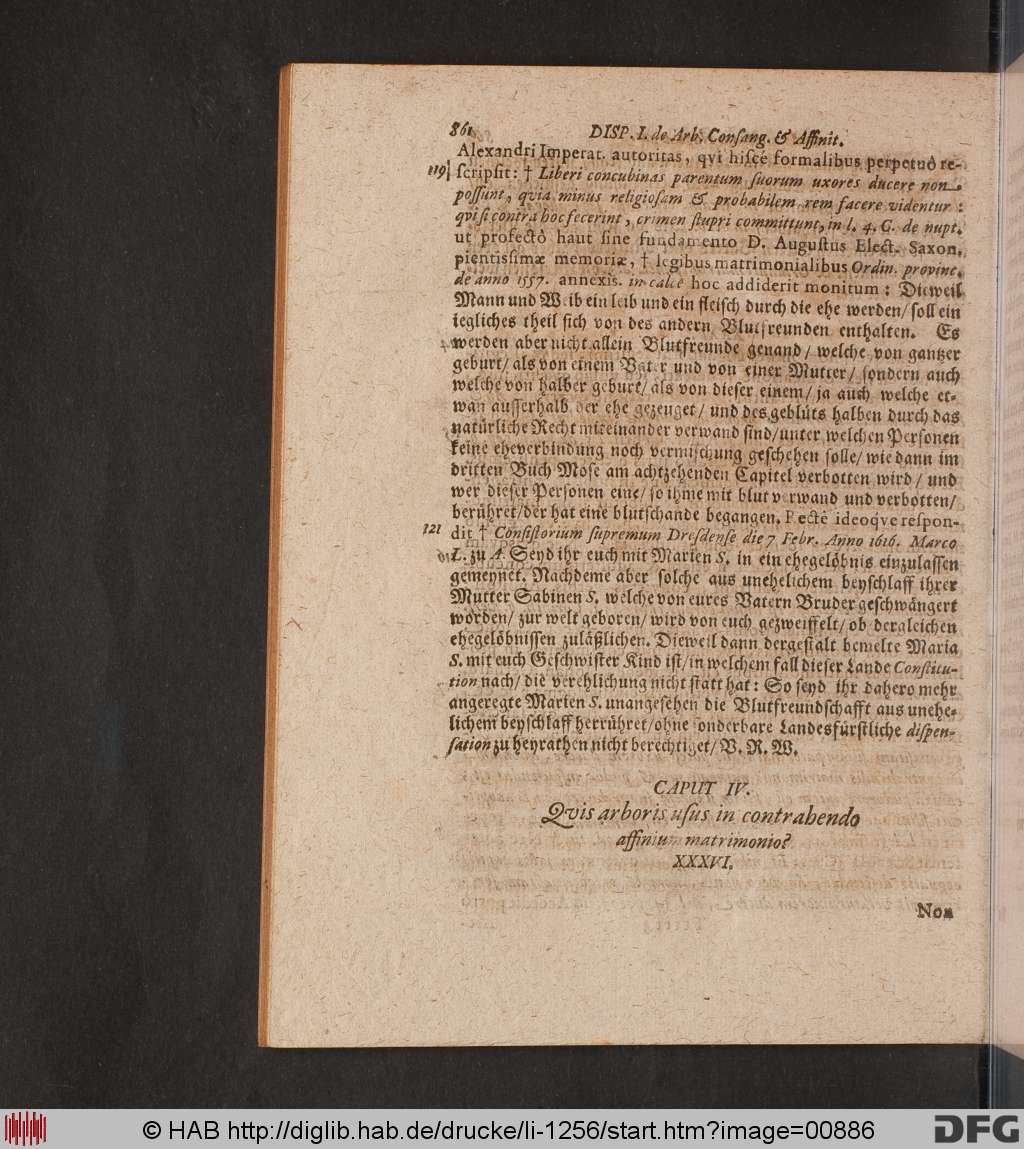 861 DISP. I. de Arb. Consang. & Affinit.
Alexandri Imperat. autoritas, qvi hisce formalibus perpetuò re-
119 scripsit: † Liberi concubinas parentum suorum uxores ducere non
possunt, qvia minus religiosam & probabilem rem facere videntur:
qvi si contra hoc fecerint, crimen stupri committunt, in l. 4. C. de nupt.
ut profectò haut sine fundamento D. Augustus Elect. Saxon.
pientissimæ memoriæ, † legibus matrimonialibus Ordin. provinc.
de anno 1557. annexis. in calce hoc addiderit monitum: Dieweil
Mann und Weib ein leib und ein fleisch durch die ehe werden/ soll ein
iegliches theil sich von des andern Blutfreunden enthalten. Es
werden aber nicht allein Blutfreunde genand/ welche von gantzer
geburt/ als von einem Vater und von einer Mutter/ sondern auch
welche von halber geburt/ als von dieser einem/ ja auch welche et-
wan ausserhalb der ehe gezeuget/ und des geblüts halben durch das
natürliche Recht miteinander verwand sind/ unter welchen Personen
keine eheverbindung noch vermischung geschehen solle/ wie dann im
dritten Buch Mose am achtzehenden Capitel verbotten wird/ und
wer dieser Personen eine/ so ihme mit blut verwand und verbotten/
berühret/ der hat eine blutschande begangen. Rectè ideoqve respon-
121 dit † Consistorium supremum Dresdense die 7 Febr. Anno 1616. Marco
L. zu A. Seyd ihr euch mit Marien S. in ein ehegelöbnis einzulassen
gemeynet. Nachdeme aber solche aus unehelichem beyschlaff ihrer
Mutter Sabinen S. welche von eures Vatern Bruder geschwängert
worden/ zur welt geboren/ wird von euch gezweiffelt/ ob dergleichen
ehegelöbnissen zuläßlichen. Dieweil dann dergestalt bemelte Maria
S. mit euch Geschwister Kind ist/ in welchem fall dieser Lande Constitu-
tion nach/ die verehlichung nicht statt hat: So seyd ihr dahero mehr
angeregte Marien S. unangesehen die Blutfreundschafft aus unehe-
lichem beyschlaff herrühret/ ohne sonderbare Landesfürstliche dispen-
sation zu heyrathen nicht berechtiget/ V. R. W.
CAPUT IV.
Qvis arboris usus in contrahendo
affinium matrimonio?
XXXVI.
Non
© HAB http://diglib.hab.de/drucke/li-1256/start.htm?image=00886
DFG